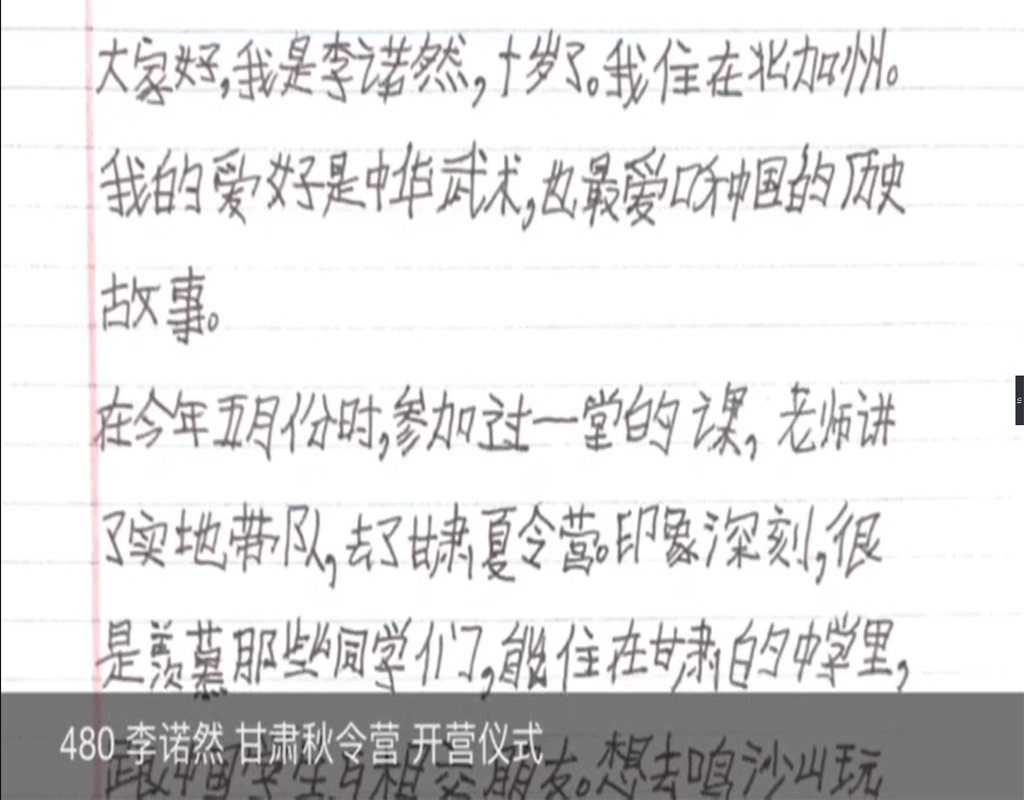 大家好,我是李诺然,十岁了。我住在北加州。
我的爱好是中华武术,也最爱听中国的历史
故事。
在今年五月份时,参加过一堂的课,老师讲
了实地带队,去了甘肃夏令营。印象深刻,很
是羡慕那些同学们了,能住在甘肃的中学里,
朋友。想去鸣沙山玩
480 李诺然 甘肃秋令营 开营仪式